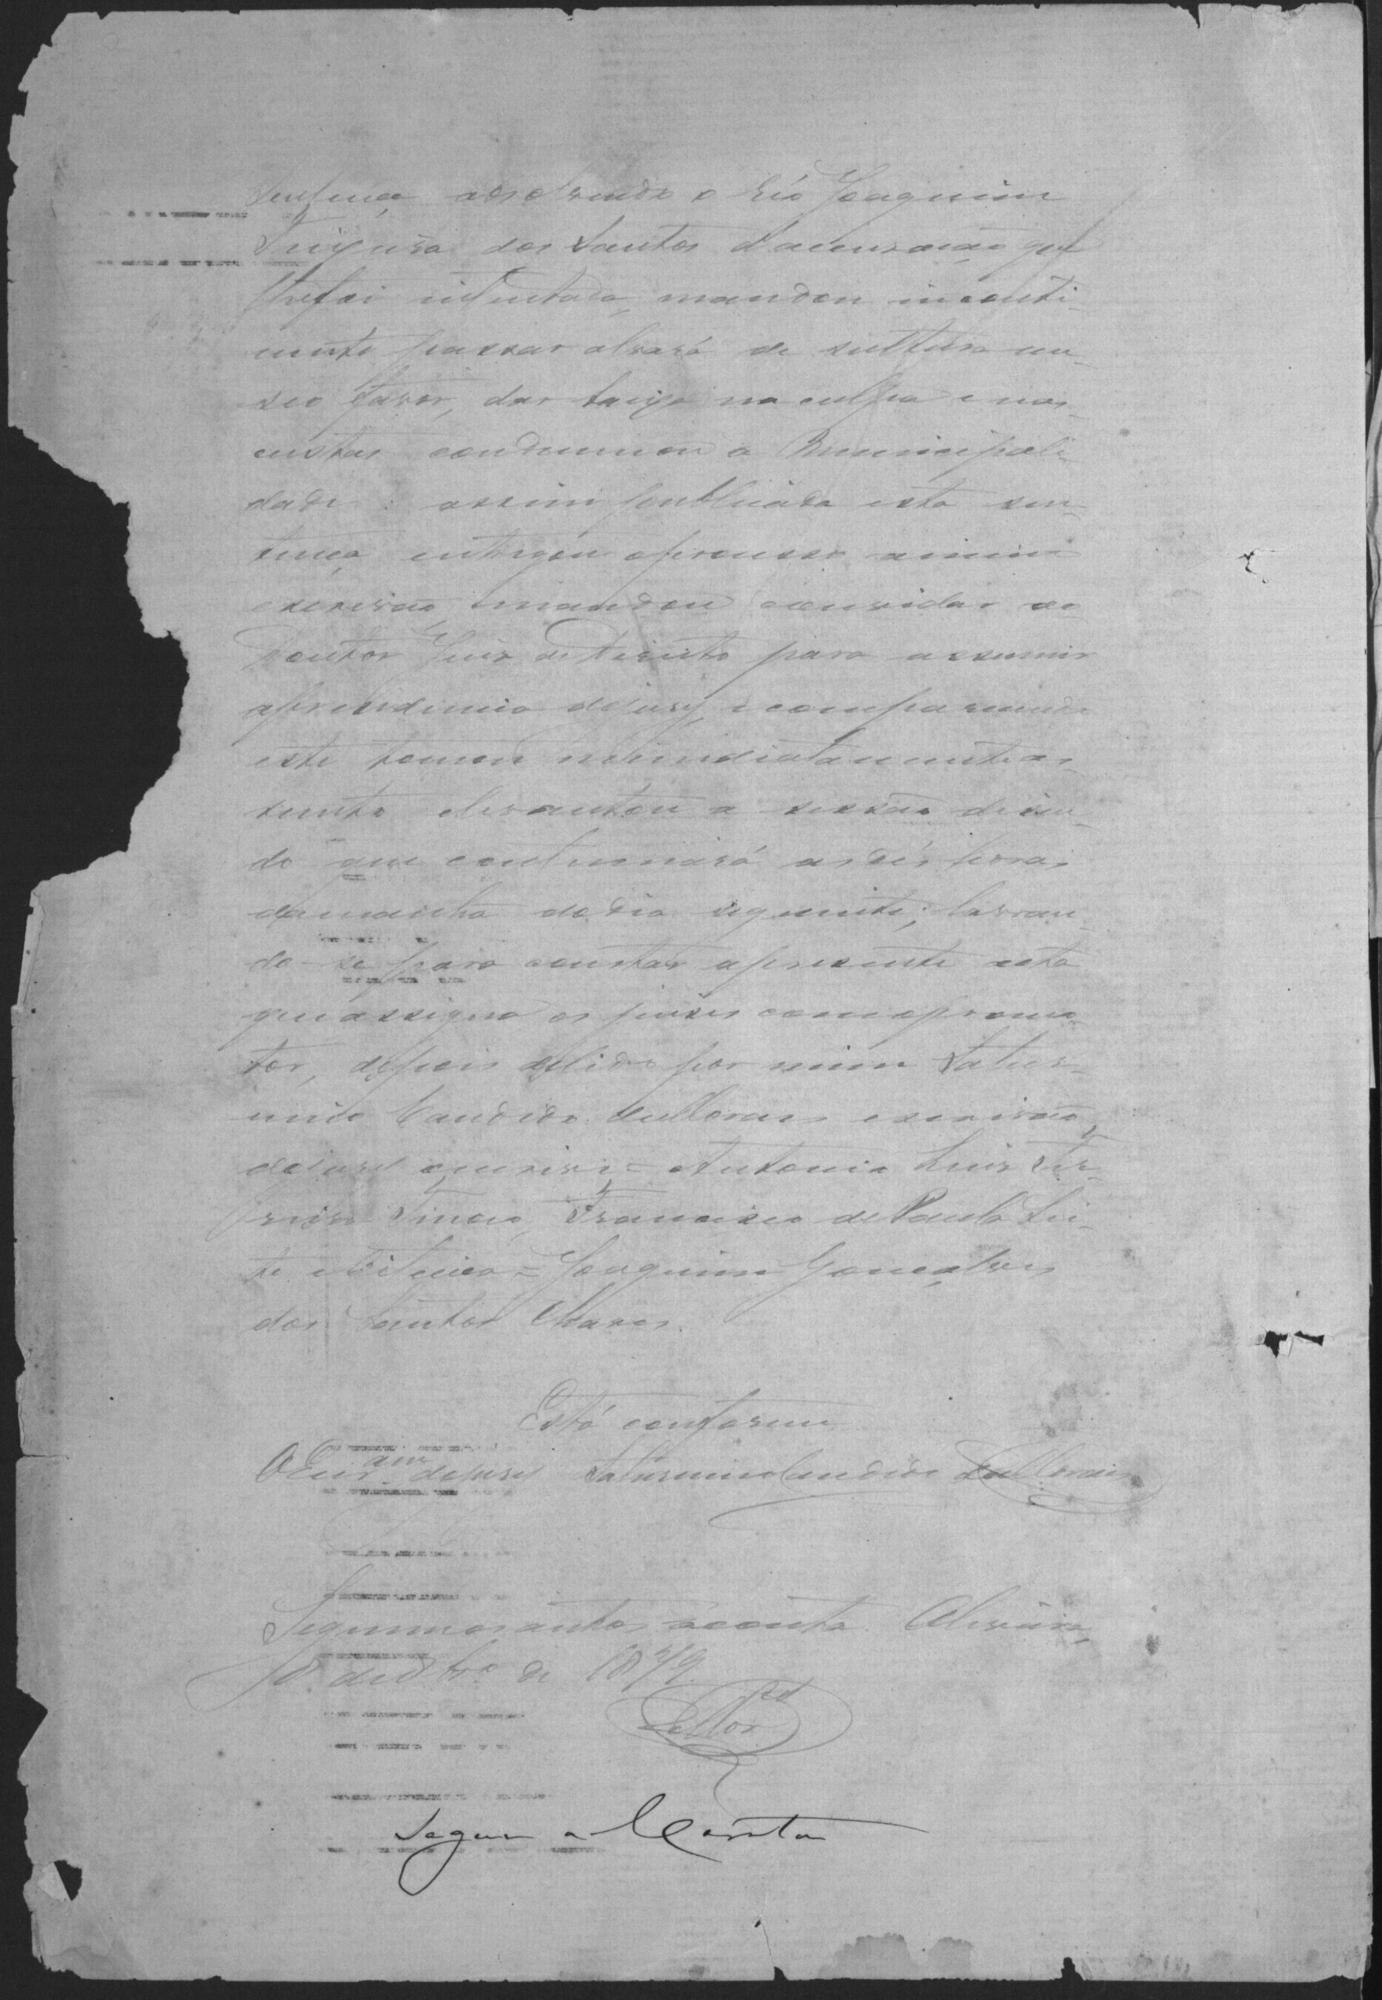 sentença absolvendo o réo Joaquim
dos Santos d'accusação que
lhe foi intentada, mandou inconti-
nente passar alvará de soltura em
seo favor, dar baixa na culpa e nas
custas condemnou a Municipali-
dade: assim publicada esta sen-
tença, entregou o processo a mim
escrivão, mandou convidar ao
Doutor Juiz de Direito para assumir
a presidencia do jury, e comparecendo
este tomou immediatamente as-
sento e levantou a sessão disen-
do que continuará as dés horas
da manhã do dia seguinte; lavran-
do-se para constar a presente acta
que assigna os juises com o promo-
tor, depois de lida por mim Satur-
nino Candido de Moraes escrivão
do jury o escrivi = Antonio Luis Fer-
reira Tinoco, Francisco de Paula Lei-
te = Joaquim Gonçalves
dos Santos Chaves.
Está conforme
O Escr.am do jury Saturnino Candido de Moraes
Segue nos autos a conta.
de 1879.
Segue a Conta